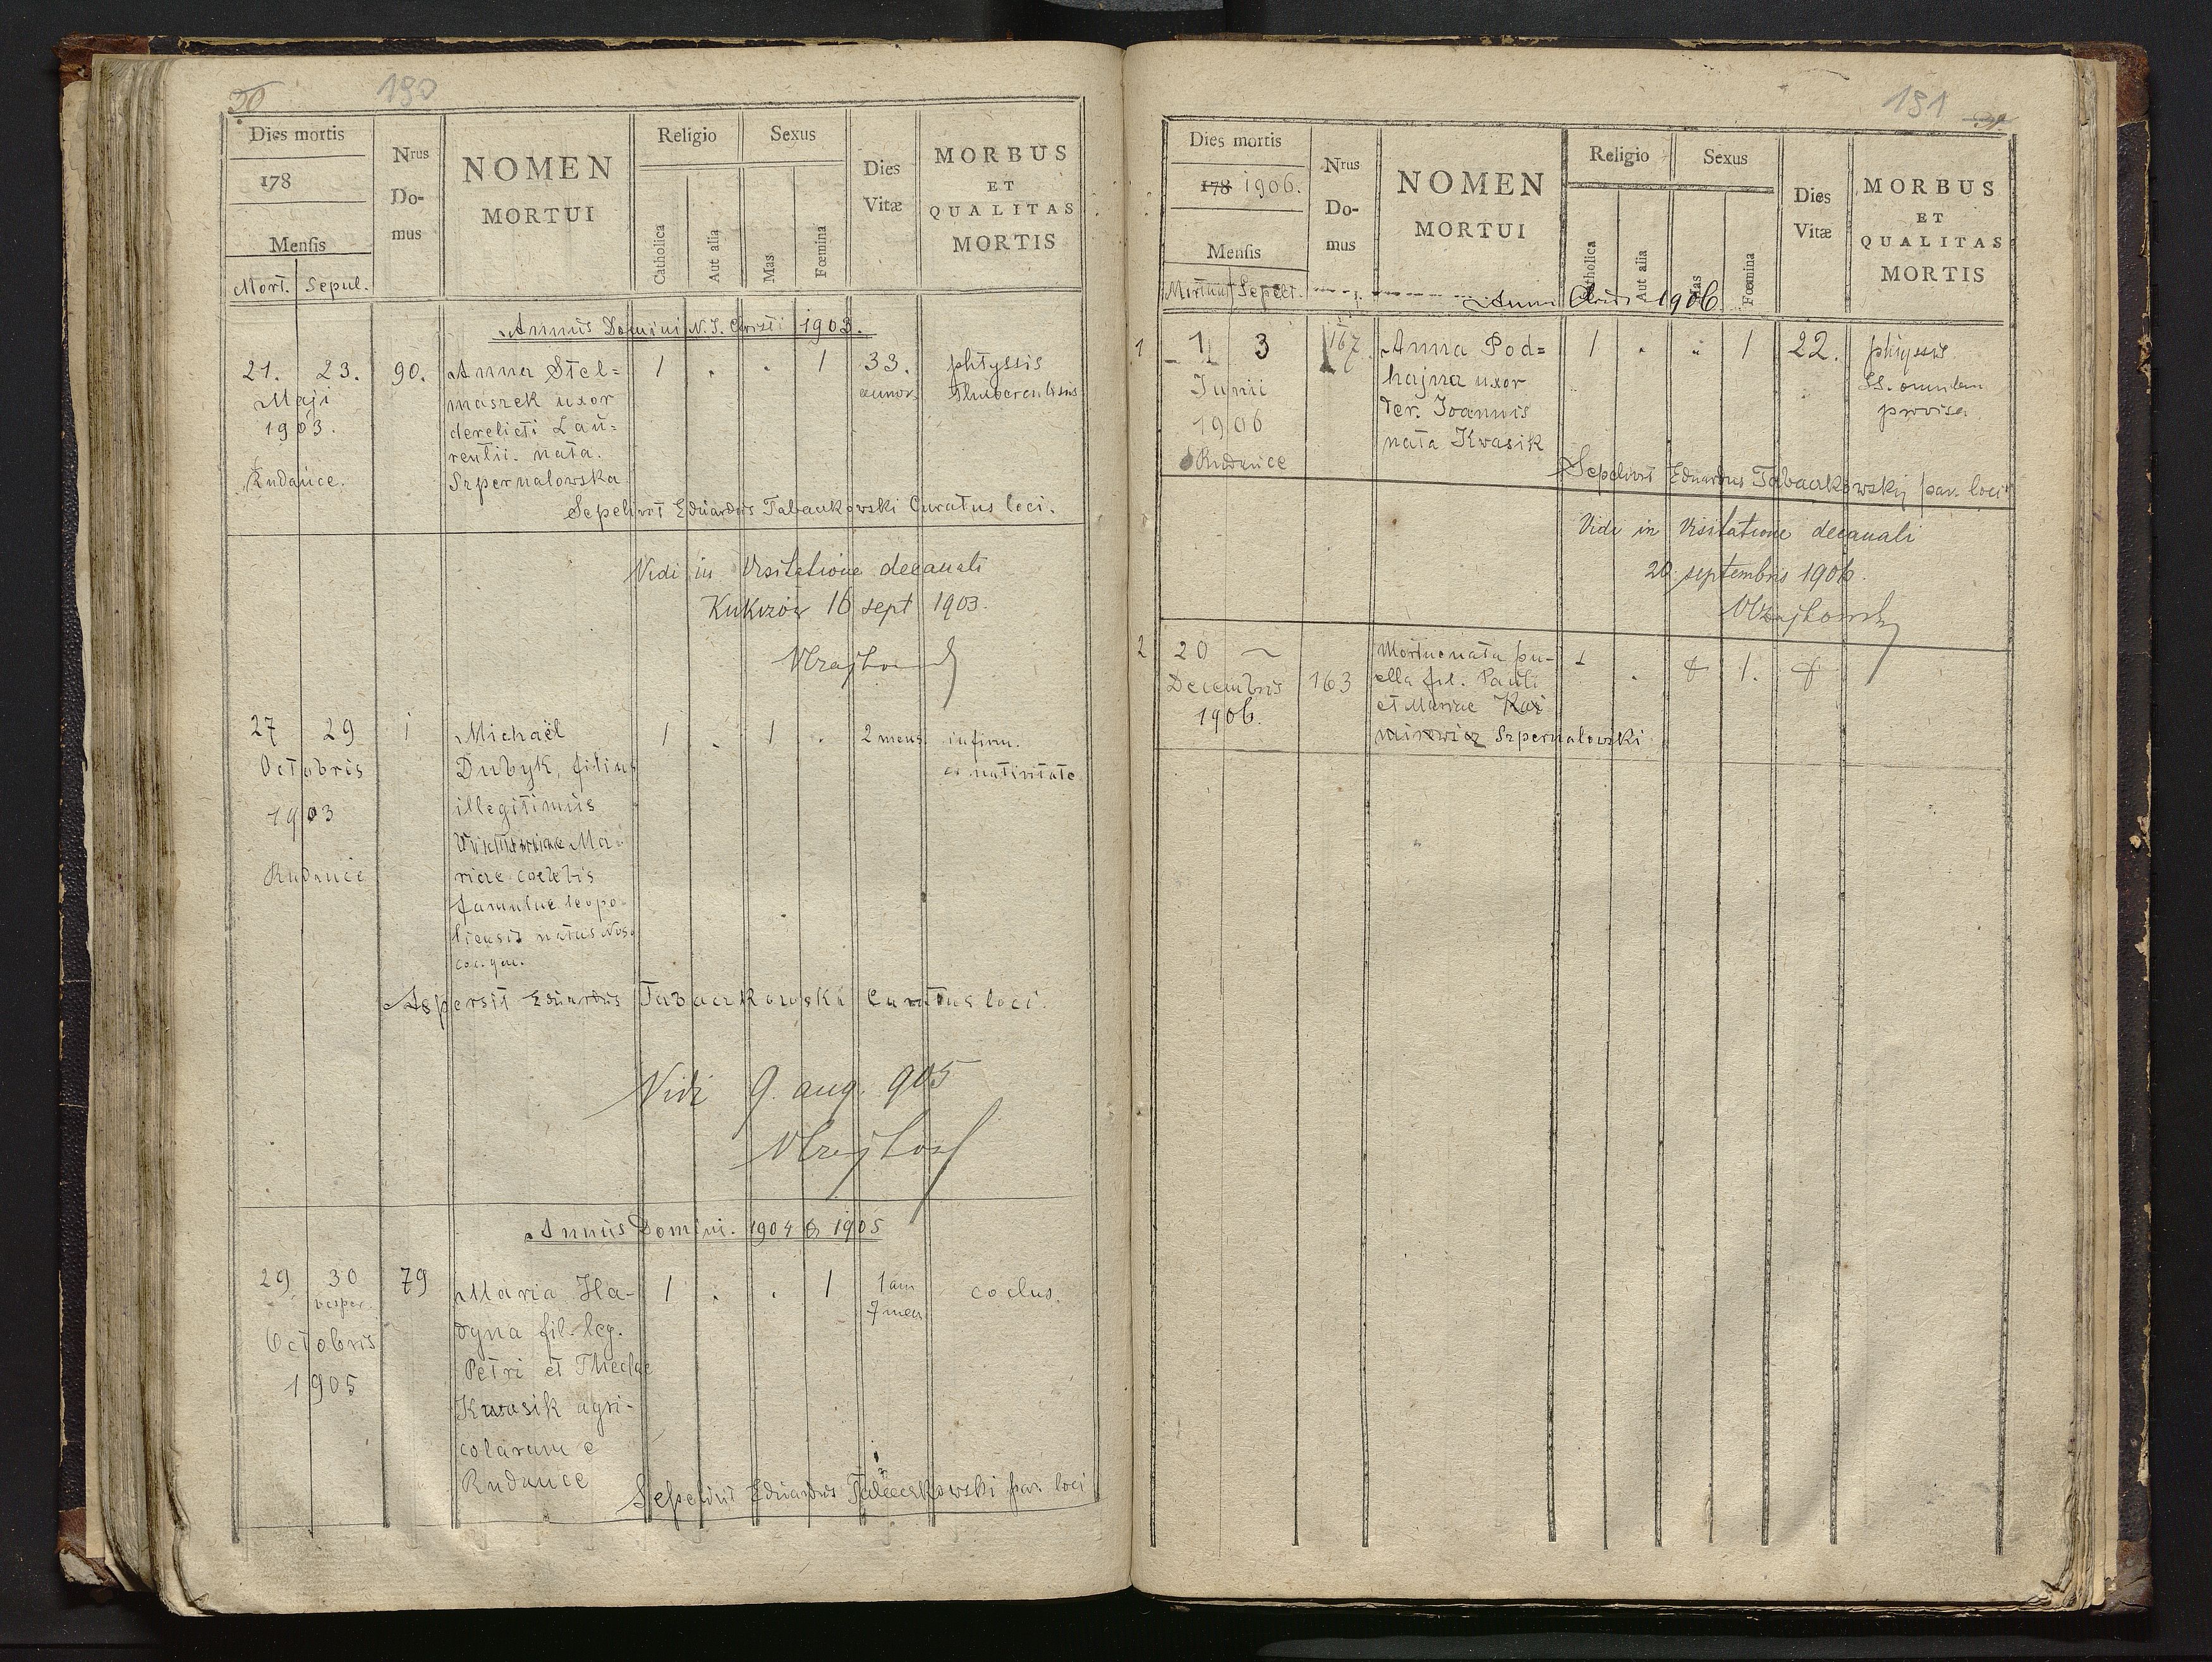 50
190
Dies mortis
178
Mensis
Mort. Sepul.
Nrus
Do-
mus
NOMEN
MORTUI
Religio
Catholica
Aut alia
Sexus
Mas
Fœmina
Dies
Vitæ
MORBUS
ET
QUALITAS
MORTIS
Annus Domini N. J. Christi 1903.
21. 23. 90. Anna Stel= 1 . . 1 33. phtyssis
Maji maszek uxor annor.
1903. derelicti Lau=
rentii. nata.
Rudance. Szpernalowska
Sepelivit Eduardus Tabaczkowski Curatus loci.
Vidi in Visitatione decanali
Kukizów 16 sept 1903.
27 29 1 Michaël 1 . 1 . 2 mens. infirm.
Octobris Dubyk, filius a nativitate
1903 illegitimus
Ma-
Rudance riae coelebis
famulae leopo-
liensis natus
Aspersit Eduardus Tabaczkowski Curatus loci.
Vidi 9. aug. 905
Annus Domini. 1904 & 1905
29 30 79 Maria Ha- 1 . . 1 1 an
vesper. dyna fil. leg. 7 men
Octobris Petri et Theclae
1905 Kwasik agri-
colarum e
Rudance
Sepelivit Eduardus Tabaczkowski par. loci
191
Dies mortis
178 1906.
Mensis
Mortuus Sepult.
Nrus
Do-
mus
NOMEN
MORTUI
Religio
Catholica
Aut alia
Sexus
Mas
Fœmina
Dies
Vitæ
MORBUS
ET
QUALITAS
MORTIS
1906.
1 1 3 167 Anna Pod= 1 . . 1 22. phtyssis
Junii hajna uxor SS. omnibus
1906 der. Joannis provisa
Rudance nata Kwasik
Sepelivit Eduardus Tabaczkowskij par. loci
Vidi in Visitatione decanali
20 septembris 1906.
2 20 ~ Mortuonata pu- 1 . 1.
Decembris 163 ella fil. Pauli
1906. et Mariae Kazi
mirowicz Szpernalowski